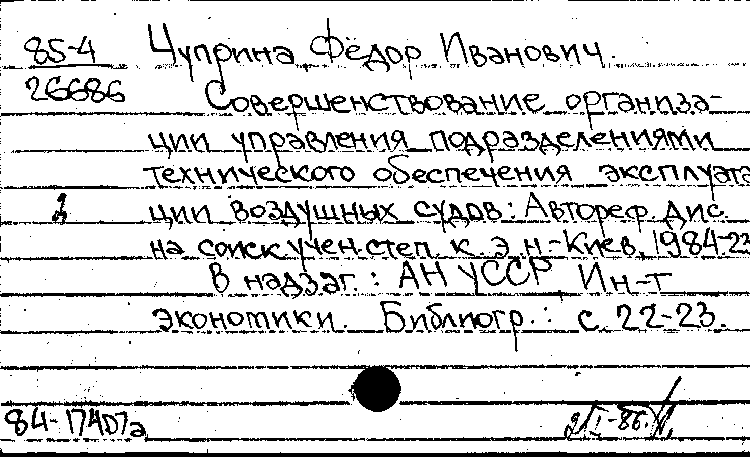 85-4 Чуприна, Фёдор Иванович.
26686 Совершенствование организа-
ции управления подразделениями
технического обеспечения эксплуата
ции воздушных судов: Автореф. дис.
на соиск. учен. степ. к. э. н.-Киев, 1984-23
В надзаг.: АН УССР, Ин-т
экономики. Библиогр.: с. 22-23.
84-17407а